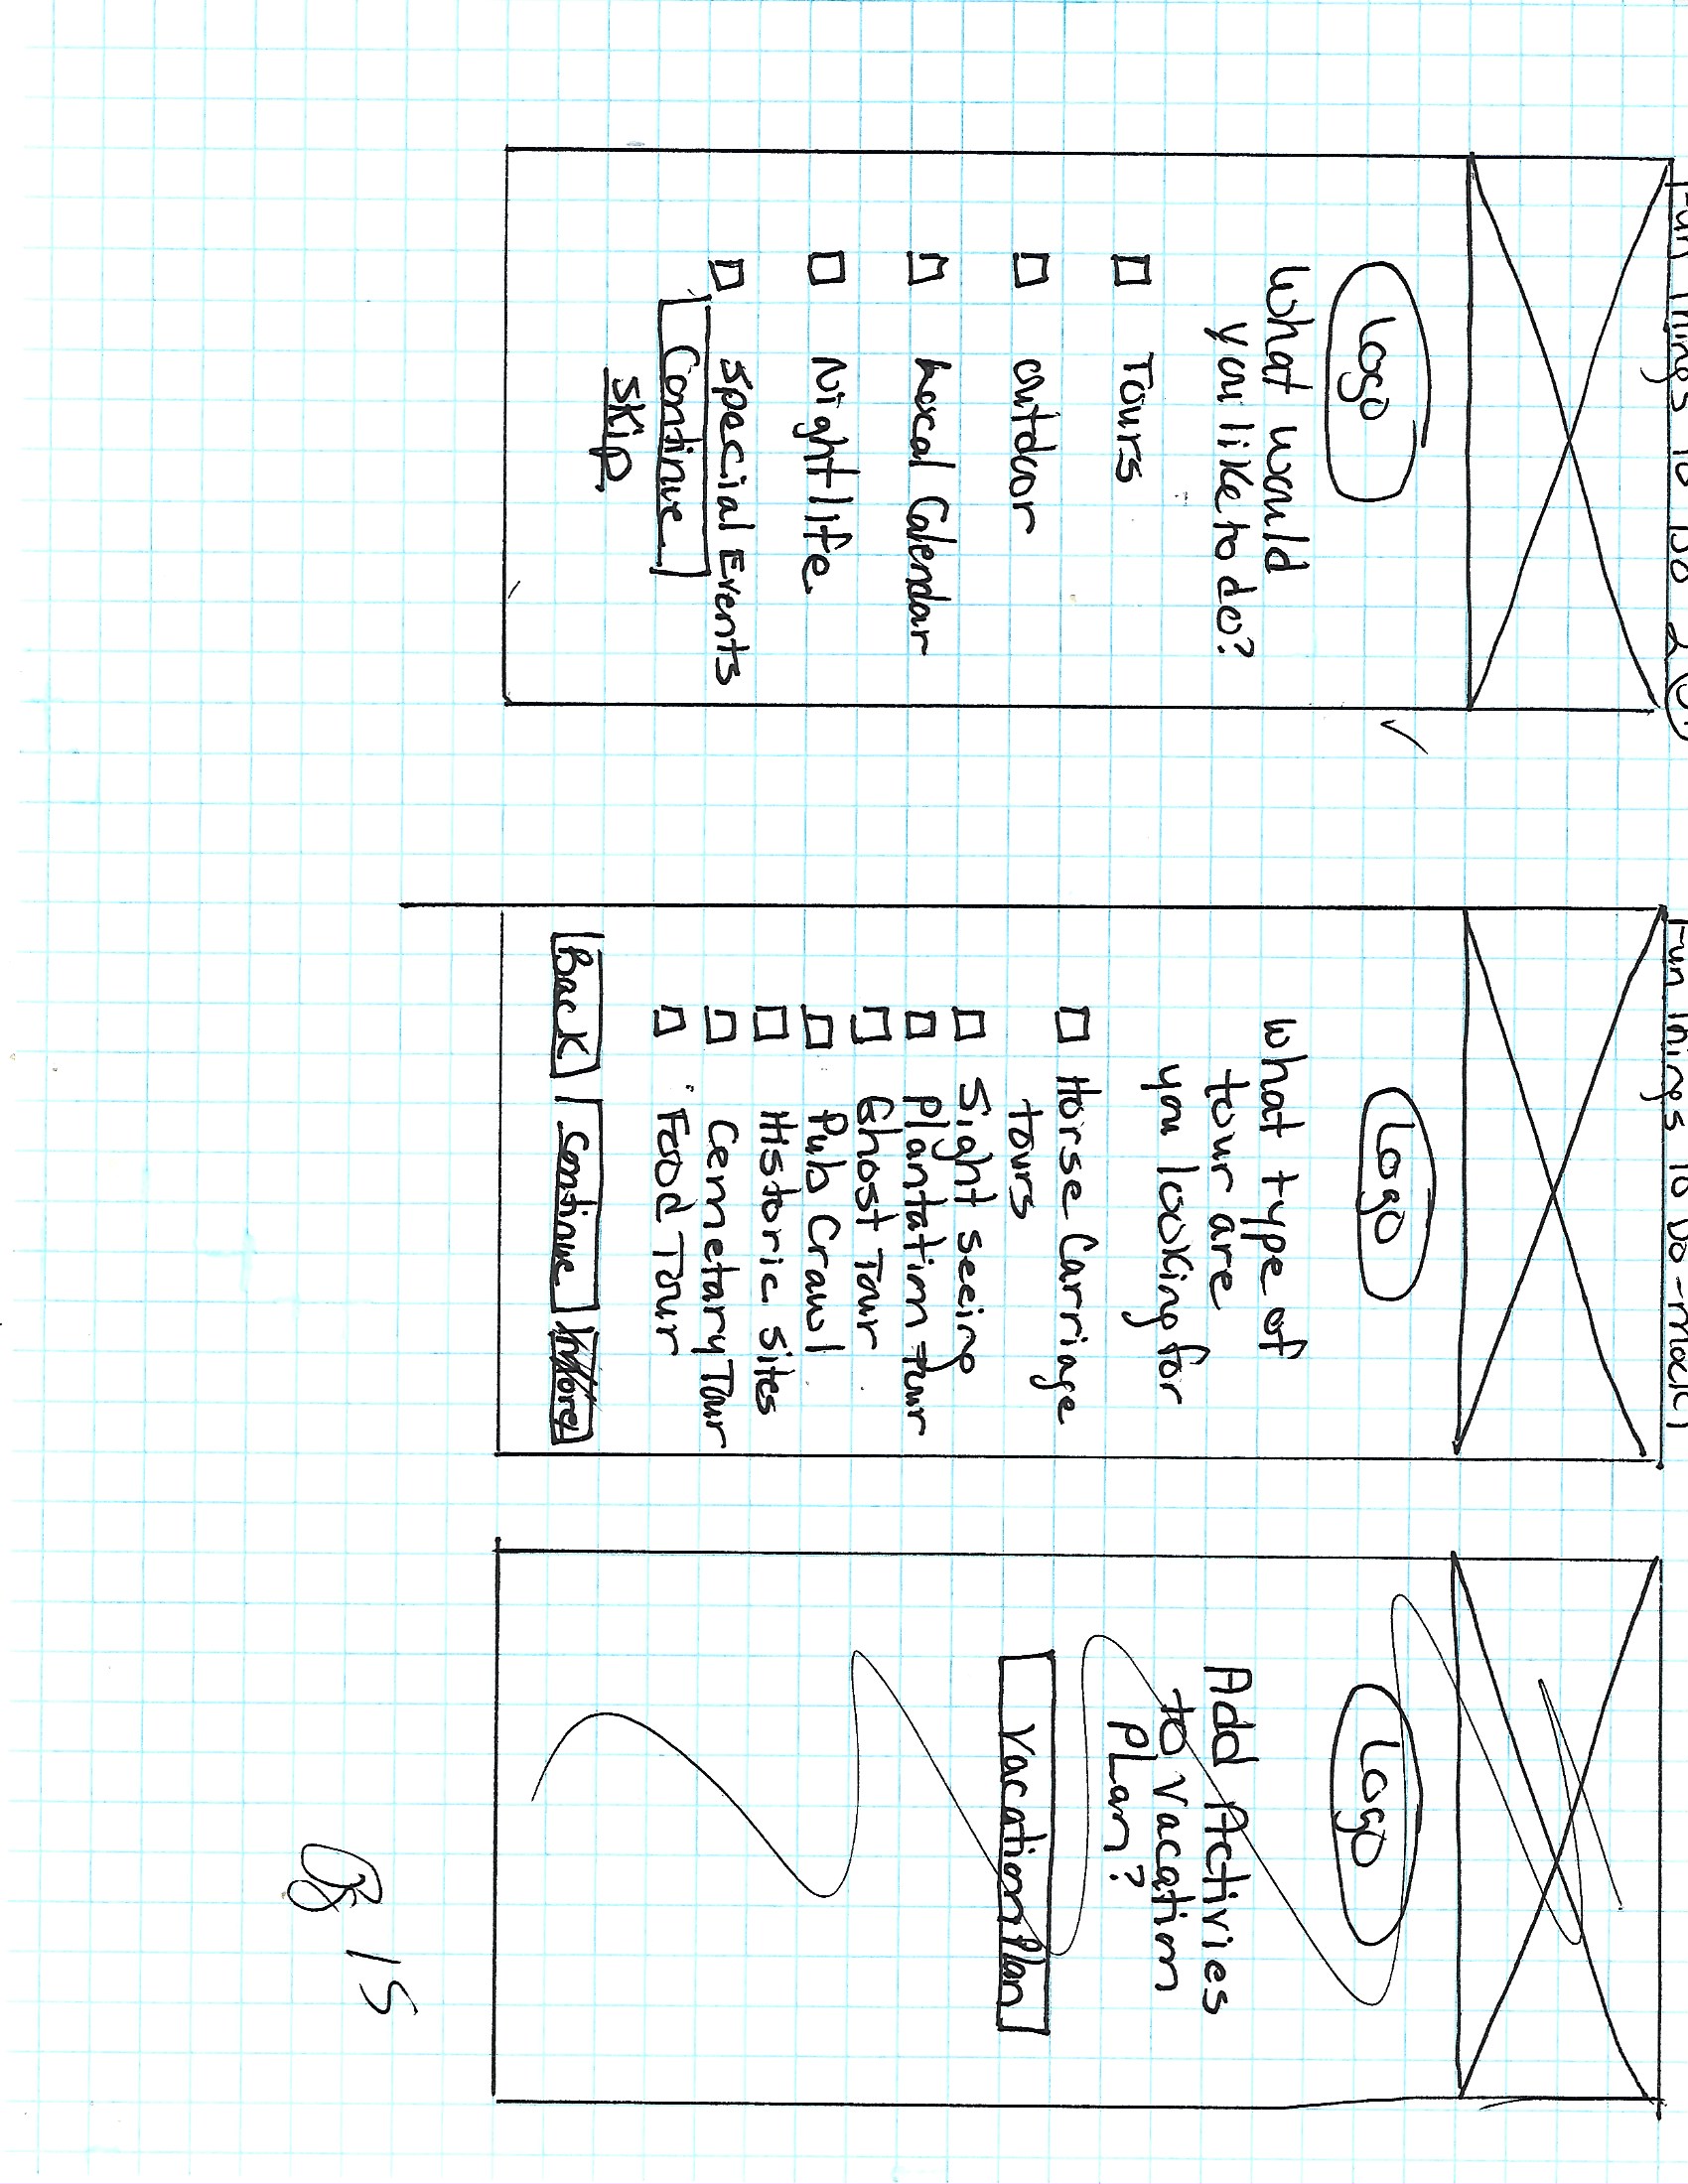 Fun Things To Do 2
Logo
What would
you like to do?
Tours
outdoor
Local Calendar
Nightlife
Special Events
Continue
Skip
Fun Things To Do -
Logo
what type of
tour are
you looking for
Horse Carriage
tours
Sight seeing
Plantation tour
Ghost Tour
Pub Crawl
Historic Sites
Cemetary Tour
Food Tour
Back
Continue
Logo
Add Activies
to vacation
PLan?
Vacation Plan
15